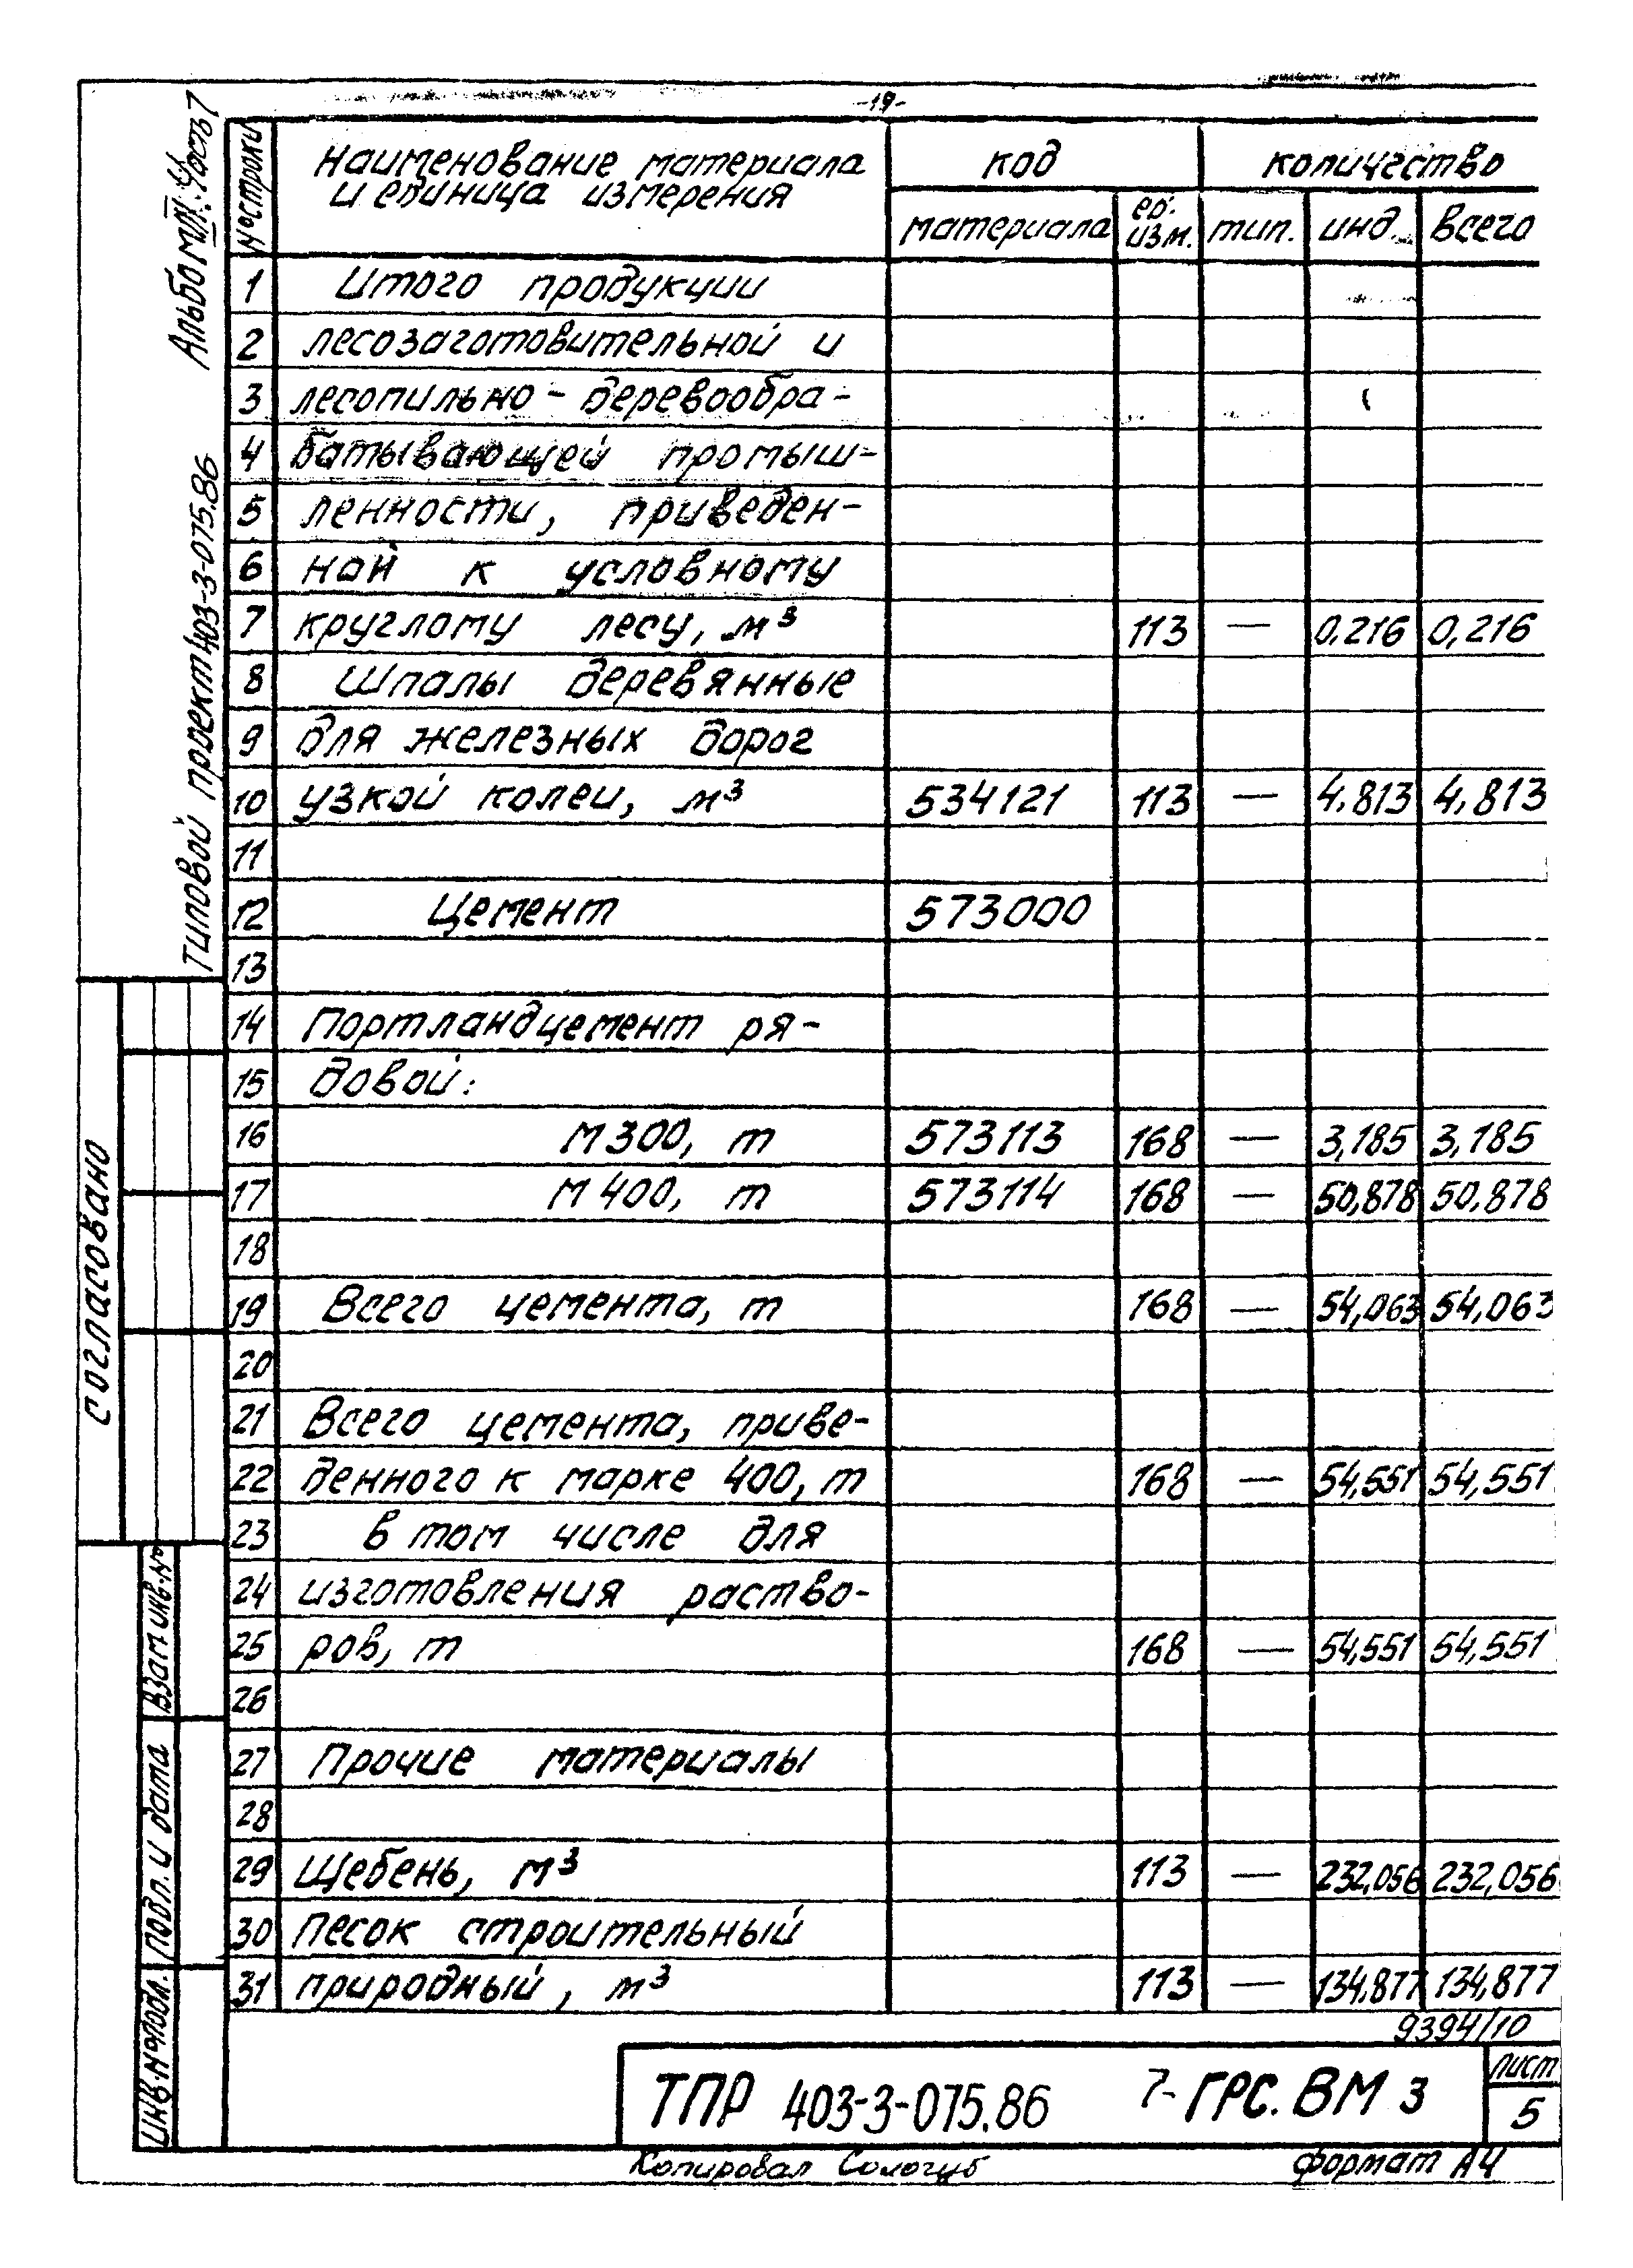 -19-
Типовой проект 403-3-075.86 Альбом VII. Часть 7
№ строки
Наименование материала
и единица измерения
код
количество
материала
ед. изм.
тип.
инд.
всего
1 Итого продукции
2 лесозаготовительной и
3 лесопильно-деревообра-
4 батывающей промыш-
5 ленности, приведен-
6 ной к условному
7 круглому лесу, м³ 113 — 0,216 0,216
8 Шпалы деревянные
9 для железных дорог
10 узкой колеи, м³ 534121 113 — 4.813 4,813
11
12 Цемент 573000
13
14 Портландцемент ря-
15 довой:
16 М300, т 573113 168 — 3,185 3,185
17 М400, т 573114 168 — 50,878 50,878
18
19 Всего цемента, т 168 — 54,063 54,063
20
21 Всего цемента, приве-
22 денного к марке 400, т 168 — 54,551 54,551
23 в том числе для
24 изготовления раство-
25 ров, т 168 — 54,551 54,551
26
27 Прочие материалы
28
29 Щебень, м³ 113 — 232,056 232,056
30 Песок строительный
31 природный, м³ 113 — 134.877 134,877
9394/10
согласовано
Взам инв. №
подп. и дата
инв. № подл.
ТПР 403-3-075.86 7-ГРС.ВМ 3
лист
5
Копировал Сологуб
формат А4